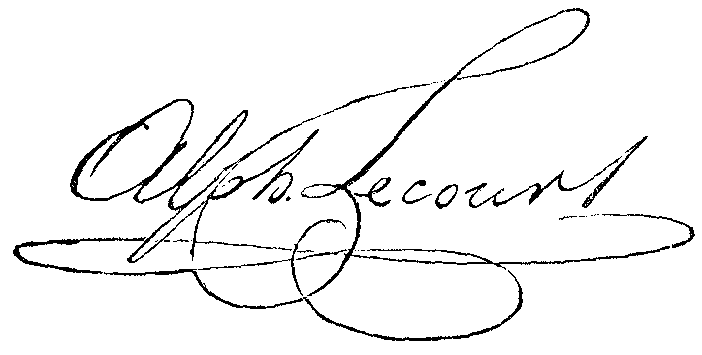 Alph. Lecourt